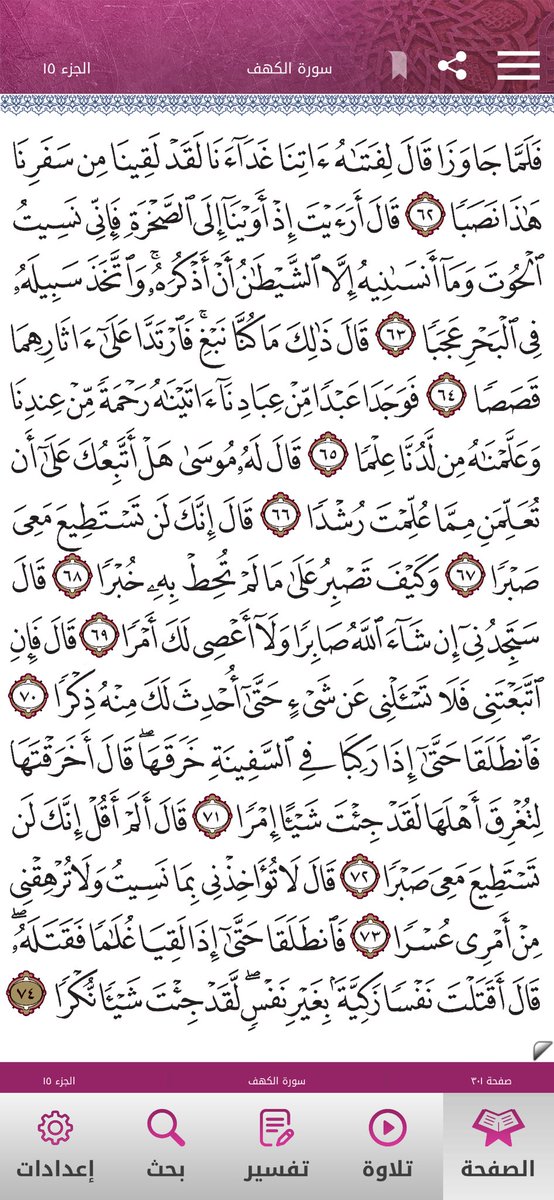 سورة الكهف
الجزء ١٥
فَلَمَّا جَاوَزَا قَالَ لِفَتَىٰهُ ءَاتِنَا غَدَآءَنَا لَقَدْ لَقِينَا مِن سَفَرِنَا
هَٰذَا نَصَبًا ٦٢ قَالَ أَرَءَيْتَ إِذْ أَوَيْنَآ إِلَى ٱلصَّخْرَةِ فَإِنِّي نَسِيتُ
ٱلْحُوتَ وَمَآ أَنسَىٰنِيهُ إِلَّا ٱلشَّيْطَٰنُ أَنْ أَذْكُرَهُۥۚ وَٱتَّخَذَ سَبِيلَهُۥ
فِي ٱلْبَحْرِ عَجَبًا ٦٣ قَالَ ذَٰلِكَ مَا كُنَّا نَبْغِۚ فَٱرْتَدَّا عَلَىٰٓ ءَاثَارِهِمَا
قَصَصًا ٦٤ فَوَجَدَا عَبْدًا مِّنْ عِبَادِنَآ ءَاتَيْنَٰهُ رَحْمَةً مِّنْ عِندِنَا
وَعَلَّمْنَٰهُ مِن لَّدُنَّا عِلْمًا ٦٥ قَالَ لَهُۥ مُوسَىٰ هَلْ أَتَّبِعُكَ عَلَىٰٓ أَن
تُعَلِّمَنِ مِمَّا عُلِّمْتَ رُشْدًا ٦٦ قَالَ إِنَّكَ لَن تَسْتَطِيعَ مَعِيَ
صَبْرًا ٦٧ وَكَيْفَ تَصْبِرُ عَلَىٰ مَا لَمْ تُحِطْ بِهِۦ خُبْرًا ٦٨ قَالَ
سَتَجِدُنِيٓ إِن شَآءَ ٱللَّهُ صَابِرًا وَلَآ أَعْصِي لَكَ أَمْرًا ٦٩ قَالَ فَإِنِ
ٱتَّبَعْتَنِي فَلَا تَسْـَٔلْنِي عَن شَيْءٍ حَتَّىٰٓ أُحْدِثَ لَكَ مِنْهُ ذِكْرًا ٧٠
فَٱنطَلَقَا حَتَّىٰٓ إِذَا رَكِبَا فِي ٱلسَّفِينَةِ خَرَقَهَاۖ قَالَ أَخَرَقْتَهَا
لِتُغْرِقَ أَهْلَهَا لَقَدْ جِئْتَ شَيْـًٔا إِمْرًا ٧١ قَالَ أَلَمْ أَقُلْ إِنَّكَ لَن
تَسْتَطِيعَ مَعِيَ صَبْرًا ٧٢ قَالَ لَا تُؤَاخِذْنِي بِمَا نَسِيتُ وَلَا تُرْهِقْنِي
مِنْ أَمْرِي عُسْرًا ٧٣ فَٱنطَلَقَا حَتَّىٰٓ إِذَا لَقِيَا غُلَٰمًا فَقَتَلَهُۥۖ
قَالَ أَقَتَلْتَ نَفْسًا زَكِيَّةَۢ بِغَيْرِ نَفْسٍۖ لَّقَدْ جِئْتَ شَيْـًٔا نُّكْرًا ٧٤
صفحة ٣٠١
سورة الكهف
الجزء ١٥
الصفحة
تلاوة
تفسير
بحث
إعدادات